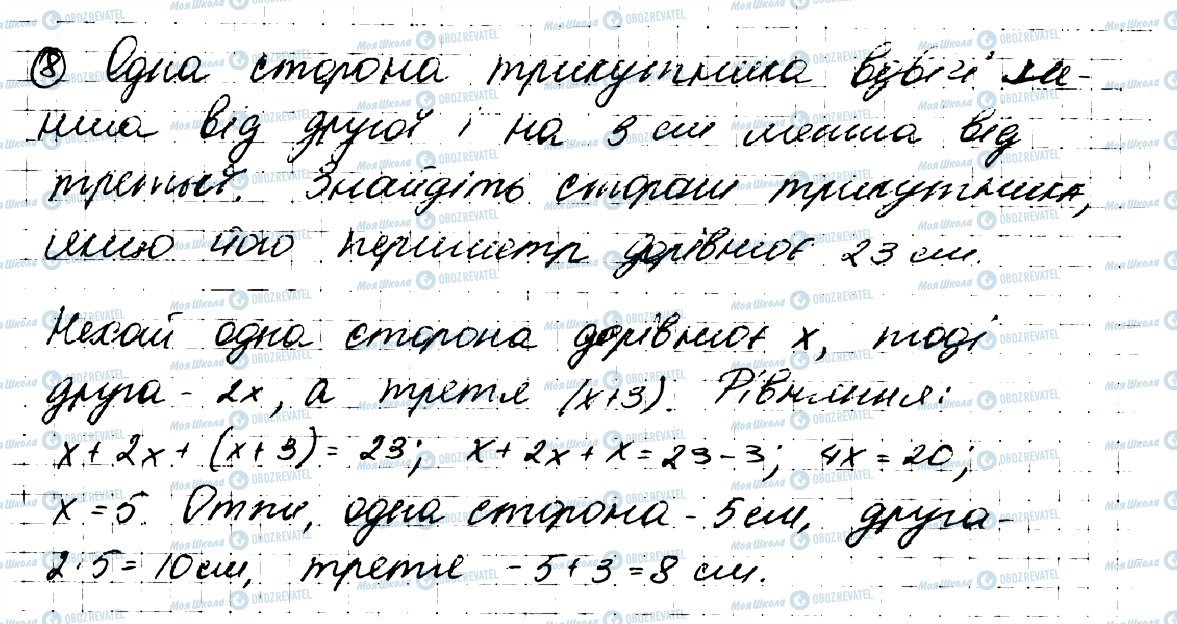 ⑧ Одна сторона трикутника вдвічі ме-
нша від другої і на 3 см менша від
третьої. Знайдіть сторони трикутника,
якщо його периметр дорівнює 23 см.
Нехай одна сторона дорівнює x, тоді
друга - 2x, а третя (x+3). Рівняння:
x + 2x + (x + 3) = 23; x + 2x + x = 23 - 3; 4x = 20;
x = 5. Отже, одна сторона - 5 см, друга -
2·5 = 10 см, третя - 5 + 3 = 8 см.